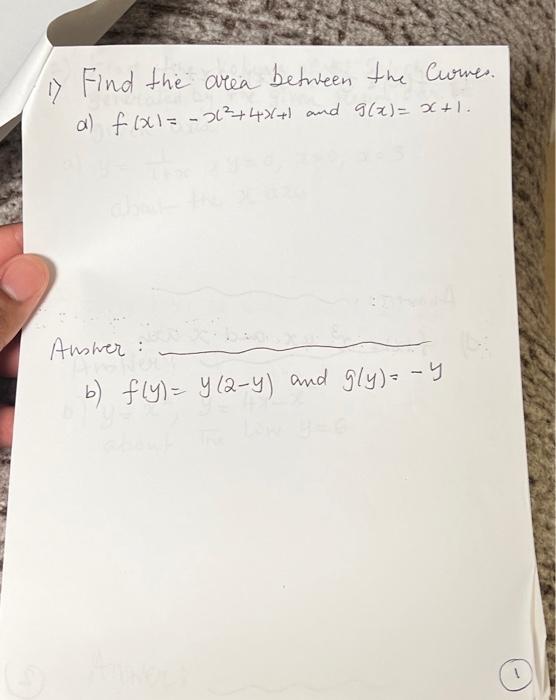 1) Find the area between the Curves.
a) f(x) = -x²+4x+1 and g(x) = x+1.
Answer :
b) f(y) = y(2-y) and g(y) = -y
1